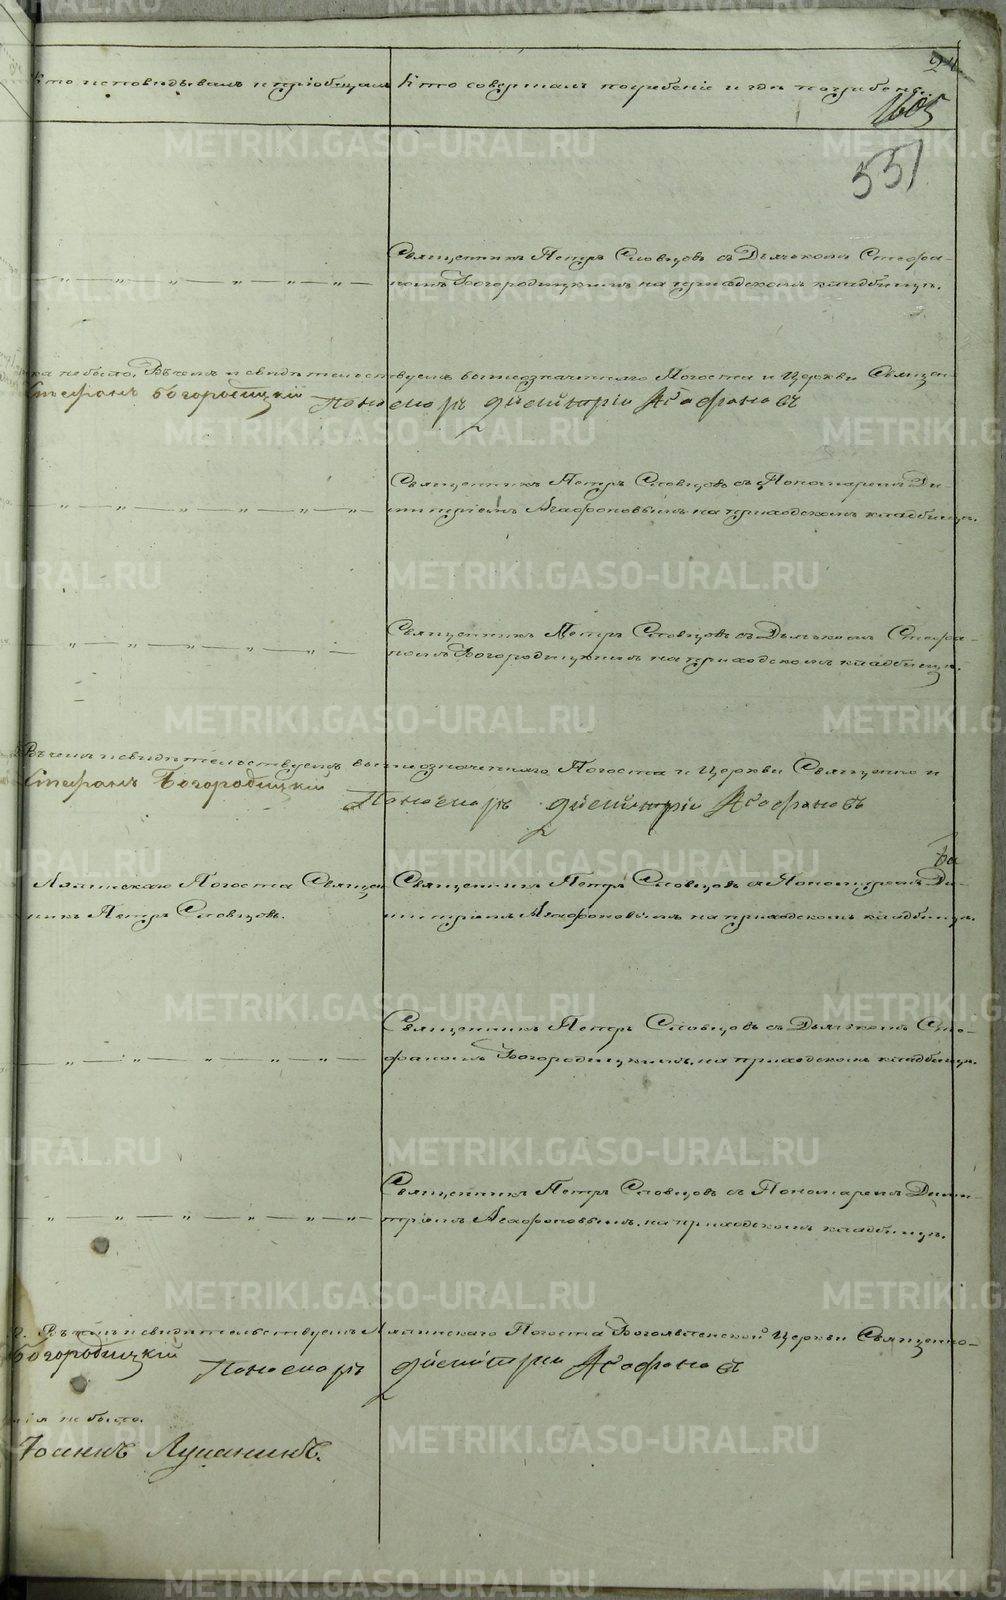 24
Кто исповѣдывалъ и пріобщалъ
Кто совершалъ погребеніе и гдѣ погребены.
1605
551
Священникъ Петръ Словцовъ съ Дьячкомъ Стефа-
номъ Богородицкимъ на приходскомъ кладбищѣ.
не было. Въ чемъ и свидѣтельствуемъ вышеозначеннаго Погоста и Церкви Священ-
Стефанъ Богородицкій Пономарь Димитрій Агафоновъ
Священникъ Петръ Словцовъ съ Пономаремъ Ди-
митріемъ Агафоновымъ на приходскомъ кладбищѣ.
Священникъ Петръ Словцовъ съ Дьячкомъ Стефа-
номъ Богородицкимъ на приходскомъ кладбищѣ.
Въ чемъ и свидѣтельствуемъ вышеозначеннаго Погоста и Церкви Священно и
Стефанъ Богородицкій Пономарь Димитрій Агафоновъ
Ляпинскаго Погоста Священ
никъ Петръ Словцовъ.
Священникъ Петръ Словцовъ съ Пономаремъ Ди-
митріемъ Агафоновымъ на приходскомъ кладбищѣ.
Священникъ Петръ Словцовъ съ Дьячкомъ Сте-
фаномъ Богородицкимъ на приходскомъ кладбищѣ.
Священникъ Петръ Словцовъ съ Пономаремъ Дими-
тріемъ Агафоновымъ на приходскомъ кладбищѣ.
Въ чемъ и свидѣтельствуемъ Ляпинскаго Погоста Богоявленской Церкви Священно-
Богородицкій Пономарь Димитрій Агафоновъ
не было.
Іоаннъ Лушниковъ.
METRIKI.GASO-URAL.RU